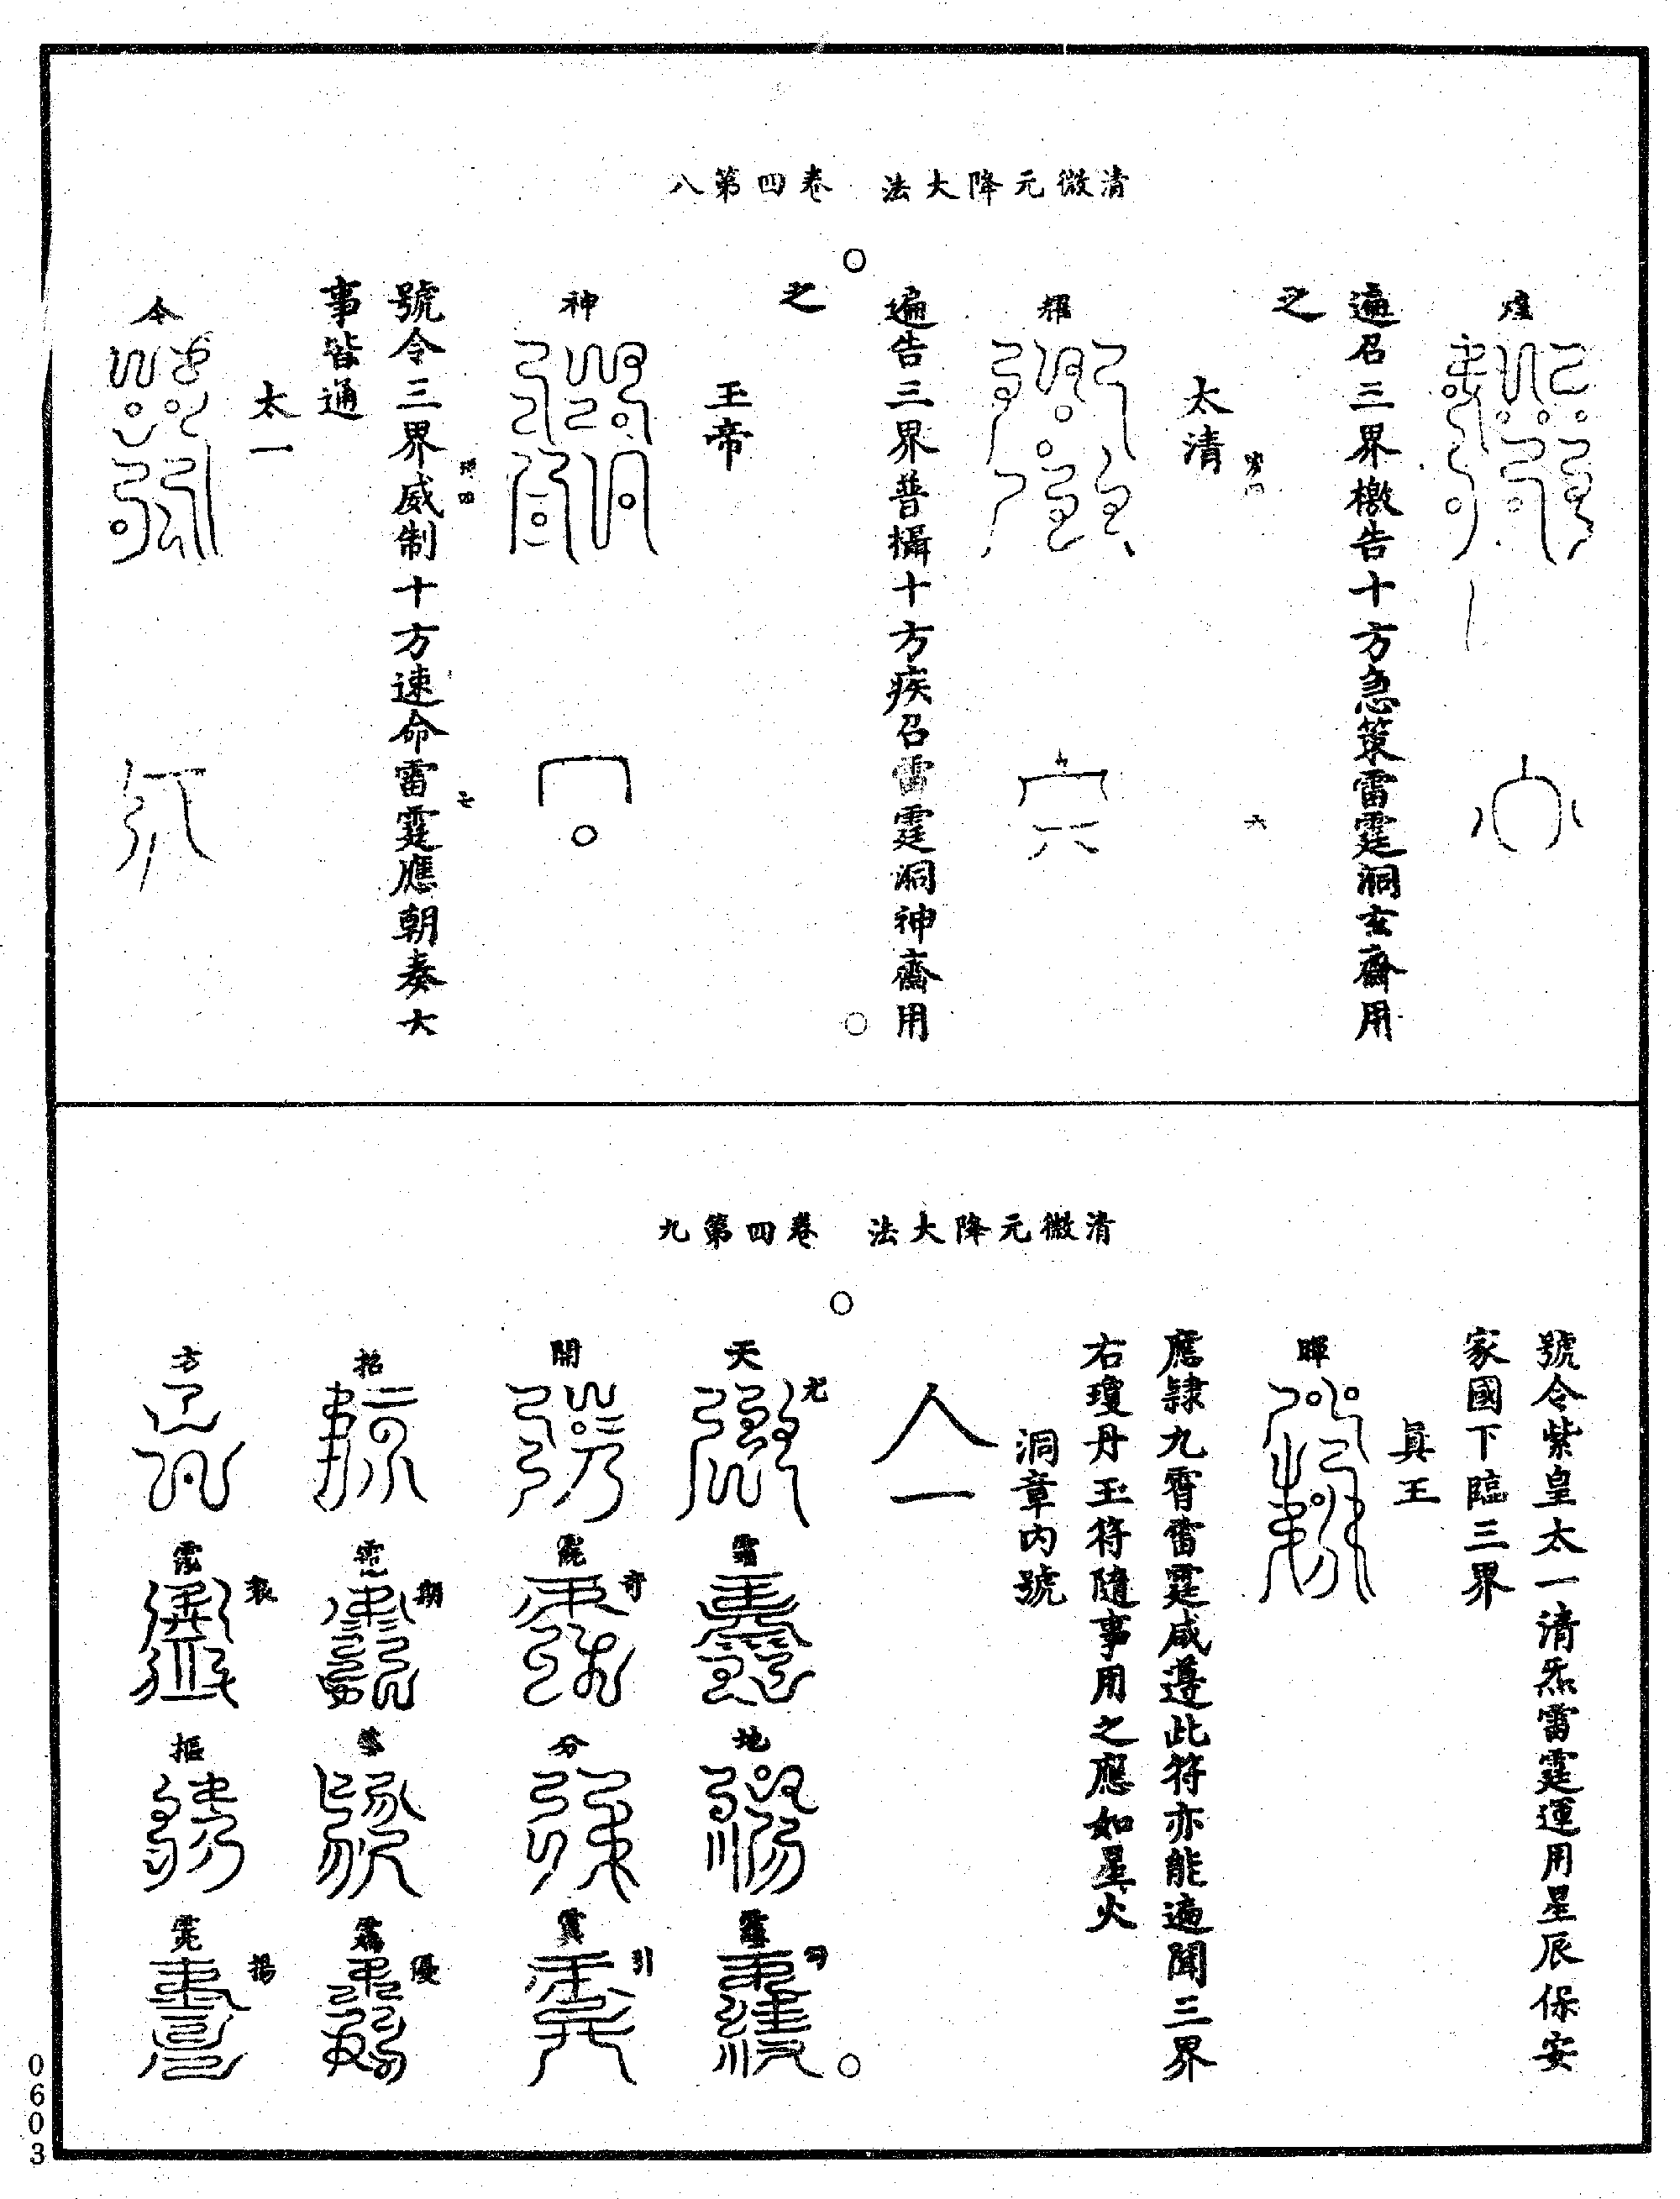 清微元降大法　卷四第八
煌
遍召三界檄告十方急策雷霆洞玄齋用
之
太清
六
耀
遍告三界普攝十方疾召雷霆洞神齋用
之
玉帝
神
號令三界威制十方速命雷霆應朝奏大
事皆通
七
太一
令
清微元降大法　卷四第九
號令紫皇太一清炁雷霆運用星辰保安
家國下臨三界
眞王
暉
應隷九霄雷霆咸遵此符亦能遍聞三界
右瓊丹玉符隨事用之應如星火
洞章內號
天
地
開
分
招
方
樞
0603